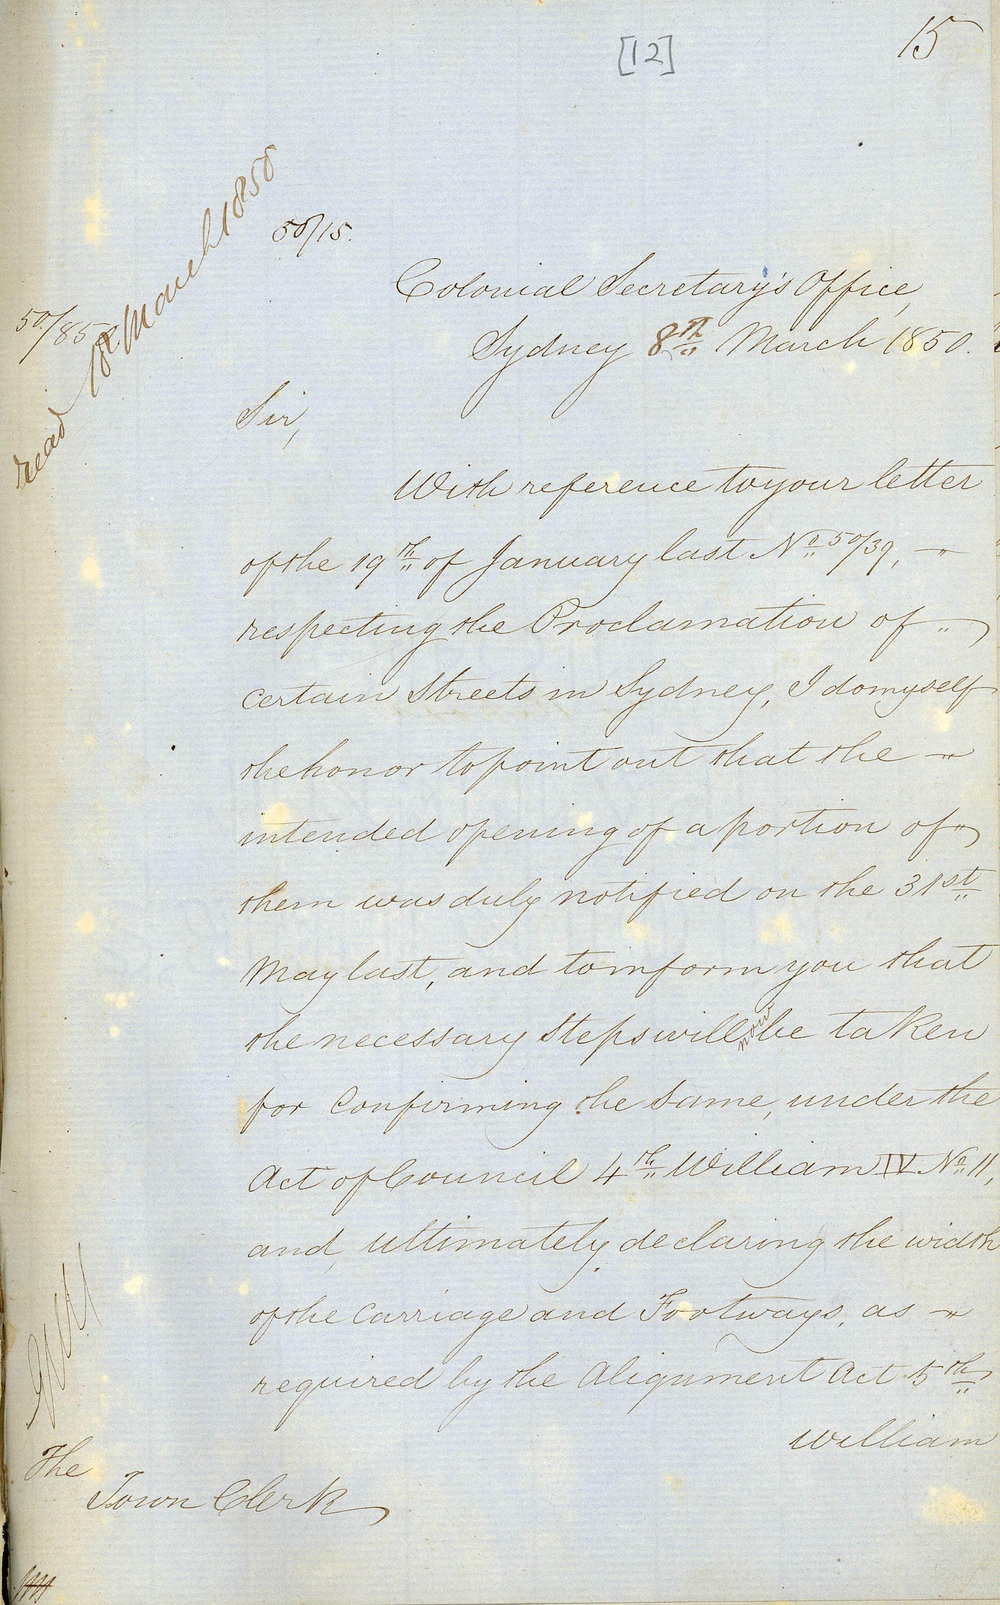 15
[12]
50/15.
read 18 March 1850
50/85
Colonial Secretary's Office,
Sydney 8th March 1850.
Sir,
With reference to your letter
of the 19th of January last No 50/39,
respecting the Proclamation of
certain Streets in Sydney, I do myself
the honor to point out that the
intended opening of a portion of
them was duly notified on the 31st
May last, and to inform you that
the necessary steps will now be taken
for confirming the same, under the
Act of Council 4th William IV No 11,
and ultimately declaring the width
of the Carriage and Footways, as
required by the Alignment Act 5th
William
The
Town Clerk